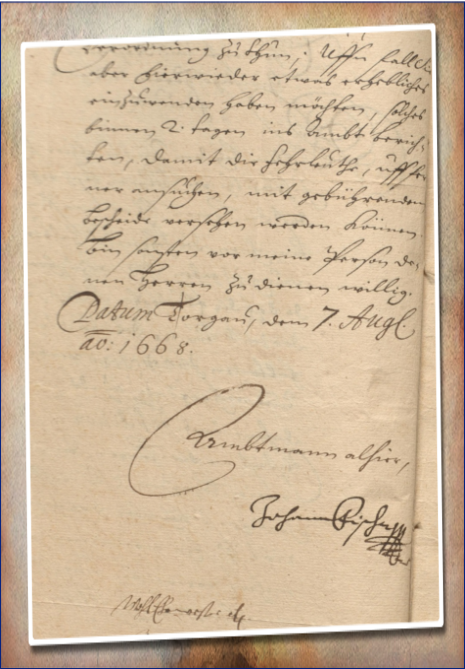 Verordnung zu thun; Uffn fall Sie
aber hierwieder etwas erhebliches
einzuwenden haben möchten, solches
binnen 2. tagen ins Ambt berich-
ten, damit die Fehrleuthe, uff fer-
ner ansuchen, mit gebührenden
bescheide versehen werden können.
bin sonsten vor meine Person de-
nen Herren zu dienen willig.
Datum Torgau, dem 7. Augl.
ao: 1668.
Ambtmann alhier,
Johann Fischer